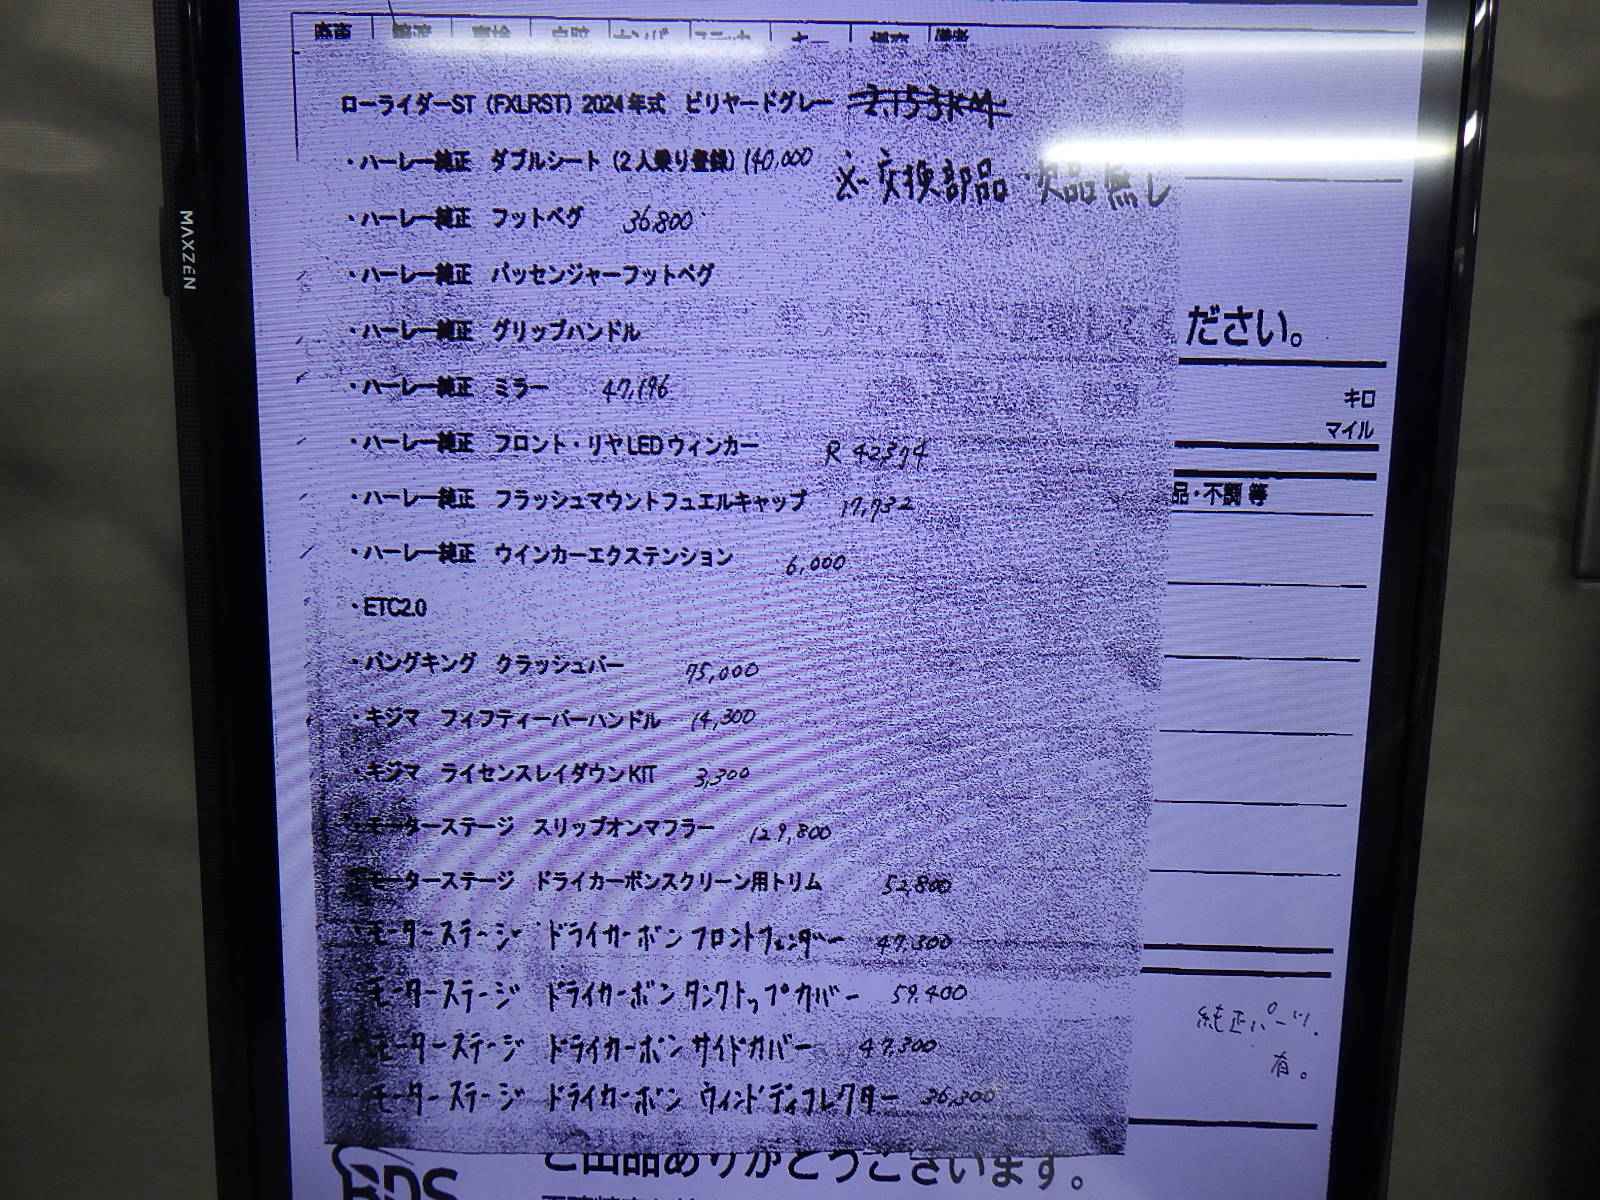 廃車 譲渡 車検 自賠 ナンバ ステッカ キー 備考
ローライダーST（FXLRST）2024年式 ビリヤードグレー 2.153KM
・ハーレー純正 ダブルシート（2人乗り登録）140,000
※交換部品・欠品無し
・ハーレー純正 フットペグ 36,800
・ハーレー純正 パッセンジャーフットペグ
・ハーレー純正 グリップハンドル
ださい。
・ハーレー純正 ミラー 47,196
キロ
マイル
・ハーレー純正 フロント・リヤLEDウィンカー R 42374
・ハーレー純正 フラッシュマウントフュエルキャップ 17,932
品・不調 等
・ハーレー純正 ウインカーエクステンション 6,000
・ETC2.0
・バングキング クラッシュバー 75,000
・キジマ フィフティーバーハンドル 14,300
・キジマ ライセンスレイダウンKIT 3,300
・モーターステージ スリップオンマフラー 129,800
・モーターステージ ドライカーボンスクリーン用トリム 52,800
・モーターステージ ドライカーボン フロントフェンダー 47,300
・モーターステージ ドライカーボン タンクトップカバー 59,400
純正パーツ.
有。
・モーターステージ ドライカーボン サイドカバー 47,300
・モーターステージ ドライカーボン ウィンドディフレクター 36,300
BDS
ご出品ありがとうございます。
MAXZEN